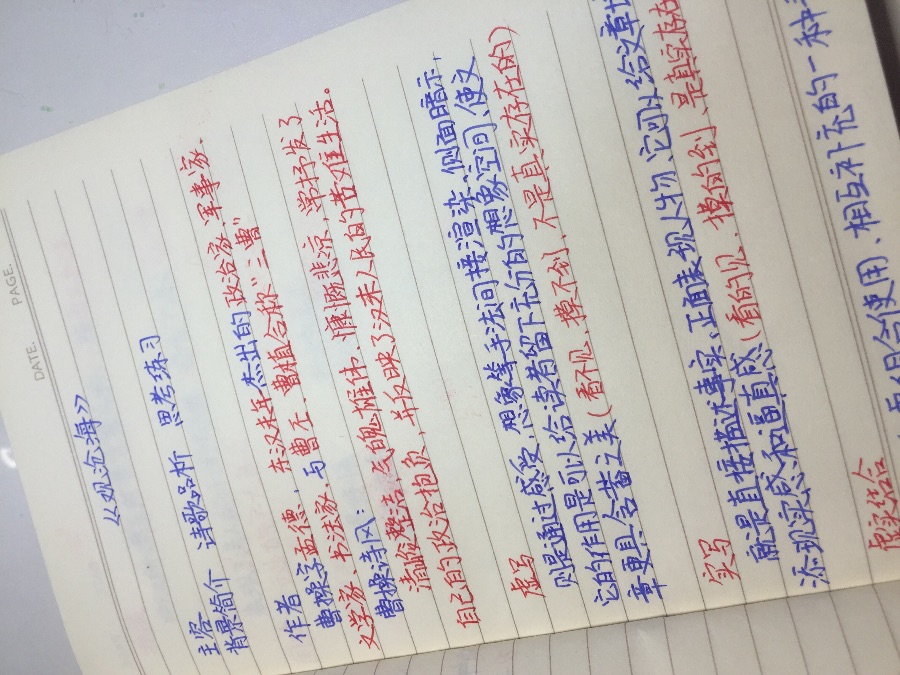 DATE. PAGE.
《观沧海》
诗歌品析 思考练习
背景简介
作者
曹操字孟德，东汉末年杰出的政治家、军事家、
文学家、书法家，与曹丕、曹植合称"三曹"
曹操诗风：
清峻整洁，气魄雄伟、慷慨悲凉，单抒发了
自己的政治抱负，并反映了汉末人民的苦难生活。
虚写
则是通过感受，想象等手法间接渲染、侧面暗示，
它的作用是可以给读者留下充分的想象空间、使文
章更具含蓄之美（看不见、摸不到、不是真实存在的）
实写
就是直接描述事实，正面表现人物，它可以给文章
添现实感和逼真感（看的见、摸的到、是真实存在
虚实结合
合使用、相互补充的一种